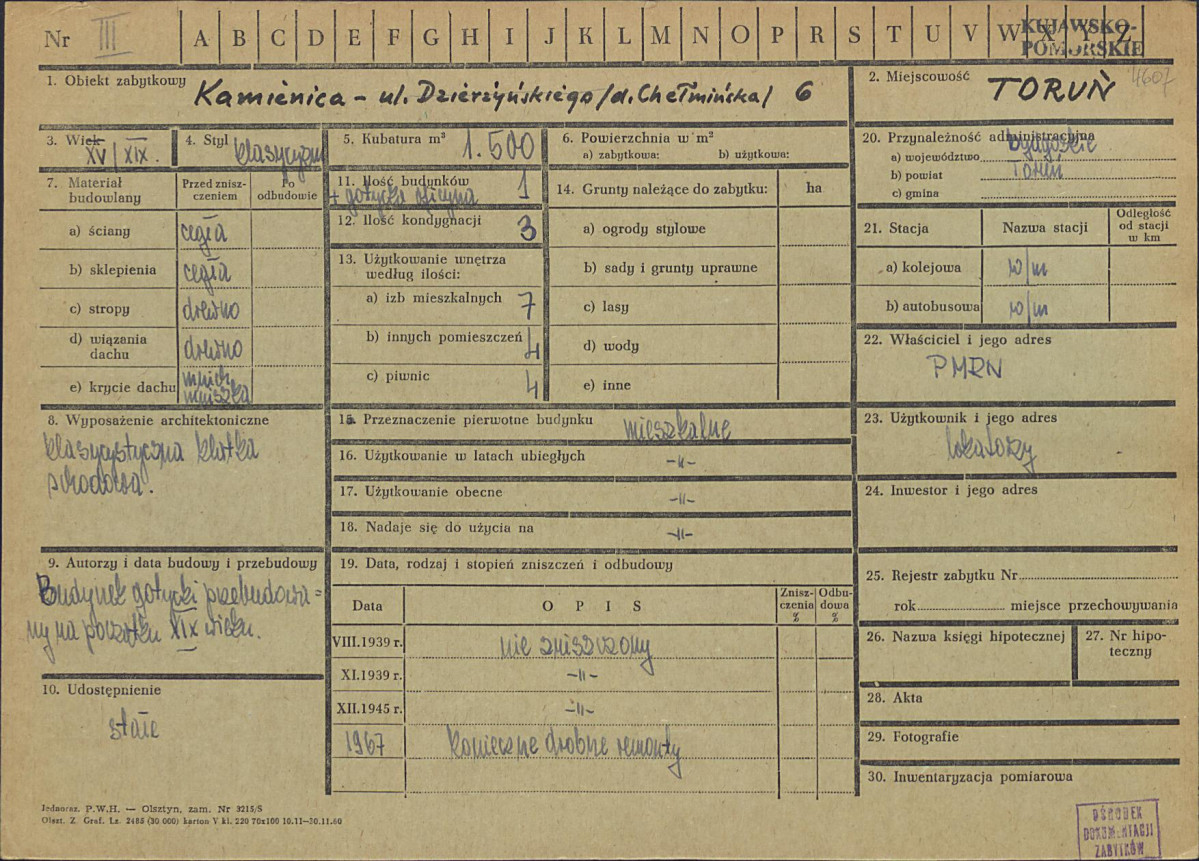 Nr III A B C D E F G H I J K L M N O P R S T U V W X Y Z
KUJAWSKO-
POMORSKIE
4607
1. Obiekt zabytkowy
Kamienica - ul. Dzierżyńskiego /d. Chełmińska/ 6
2. Miejscowość
TORUŃ
3. Wiek
XV/XIX.
4. Styl klasycyzm
5. Kubatura m³ 1.500
6. Powierzchnia w m²
a) zabytkowa: b) użytkowa:
7. Materiał budowlany
Przed znisz-
czeniem
Po
odbudowie
a) ściany cegła
b) sklepienia cegła
c) stropy drewno
d) wiązania
dachu drewno
e) krycie dachu mnich
mniszka
8. Wyposażenie architektoniczne
klasycystyczna klatka
schodowa.
9. Autorzy i data budowy i przebudowy
Budynek gotycki przebudowa=
ny na początku XIX wieku.
10. Udostępnienie
stałe
11. Ilość budynków 1
+ gotycka oficyna
12. Ilość kondygnacji 3
13. Użytkowanie wnętrza
według ilości:
a) izb mieszkalnych 7
b) innych pomieszczeń 4
c) piwnic 4
14. Grunty należące do zabytku: ha
a) ogrody stylowe
b) sady i grunty uprawne
c) lasy
d) wody
e) inne
15. Przeznaczenie pierwotne budynku mieszkalne
16. Użytkowanie w latach ubiegłych -"-
17. Użytkowanie obecne -"-
18. Nadaje się do użycia na -"-
19. Data, rodzaj i stopień zniszczeń i odbudowy
Data
O P I S
Znisz-
czenia
%
Odbu-
dowa
%
VIII.1939 r. nie zniszczony
XI.1939 r. -"-
XII.1945 r. -"-
1967 konieczne drobne remonty
20. Przynależność administracyjna
a) województwo bydgoskie
b) powiat Toruń
c) gmina
21. Stacja
Nazwa stacji
Odległość
od stacji
w km
a) kolejowa w/m
b) autobusowa w/m
22. Właściciel i jego adres
PMRN
23. Użytkownik i jego adres
lokatorzy
24. Inwestor i jego adres
25. Rejestr zabytku Nr
rok miejsce przechowywania
26. Nazwa księgi hipotecznej
27. Nr hipo-
teczny
28. Akta
29. Fotografie
30. Inwentaryzacja pomiarowa
Jednoraz. P.W.H. — Olsztyn, zam. Nr 3215/S
Olszt. Z. Graf. Lz. 2485 (30 000) karton V kl. 220 70x100 10.11—30.11.60
OŚRODEK
DOKUMENTACJI
ZABYTKÓW